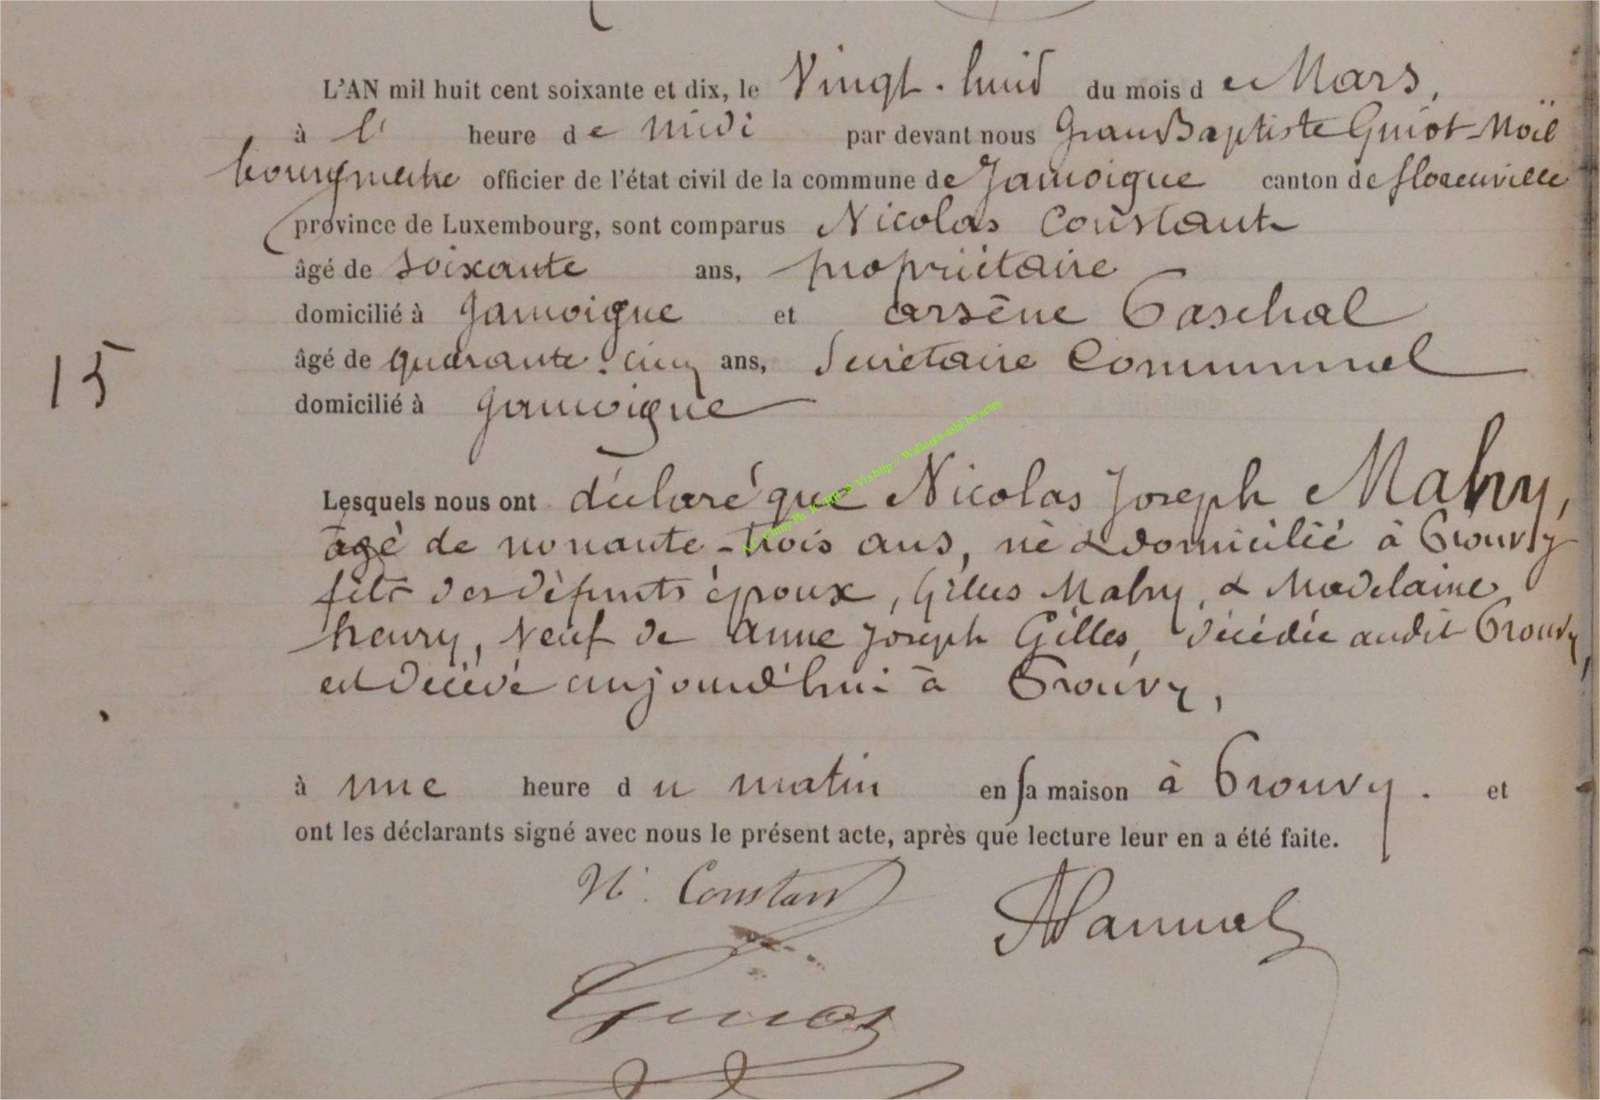 L'AN mil huit cent soixante et dix, le Vingt-huit du mois de Mars,
à l' heure de midi par devant nous Jean Baptiste Guiot-Noël
bourgmestre officier de l'état civil de la commune de Jamoigne canton de florenville
province de Luxembourg, sont comparus Nicolas Constant
âgé de soixante ans, propriétaire
domicilié à Jamoigne et arsène
âgé de quarante-cinq ans, Secrétaire Communal
15
domicilié à Jamoigne
Lesquels nous ont déclaré que Nicolas Joseph Mahy,
âgé de nonante-trois ans, né & domicilié à Prouvy
fils des défunts époux, Gilles Mahy, & Madelaine
henry, Veuf de Anne Joseph Gilles, décédée audit Prouvy,
est décédé aujourd'hui à Prouvy,
à une heure du matin en sa maison à Prouvy. et
ont les déclarants signé avec nous le présent acte, après que lecture leur en a été faite.
N. Constant
Guiot